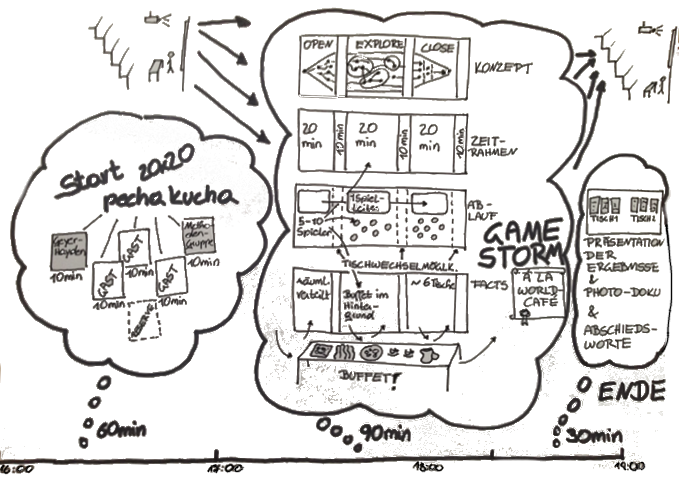 Start 20x20
pecha kucha
Geyer-
Hayden
10min
GAST
10min
GAST
10min
GAST
10min
Metho-
den-
Gruppe
10min
RESERVE
60min
OPEN
EXPLORE
CLOSE
KONZEPT
20
min
10 min
20
min
10 min
20
min
10 min
ZEIT-
RAHMEN
1 Spiel-
leiter
5-10
Spieler
AB-
LAUF
TISCHWECHSELMÖGLK.
räuml.
verteilt
Buffet im
Hinter-
grund
~ 6 Tische
FACTS
BUFFET!
GAME
STORM
À LA
WORLD-
CAFÉ
90min
TISCH1
TISCH2
PRÄSENTATION
DER
ERGEBNISSE
&
PHOTO-DOKU
&
ABSCHIEDS-
WORTE
ENDE
30min
16:00
17:00
18:00
19:00